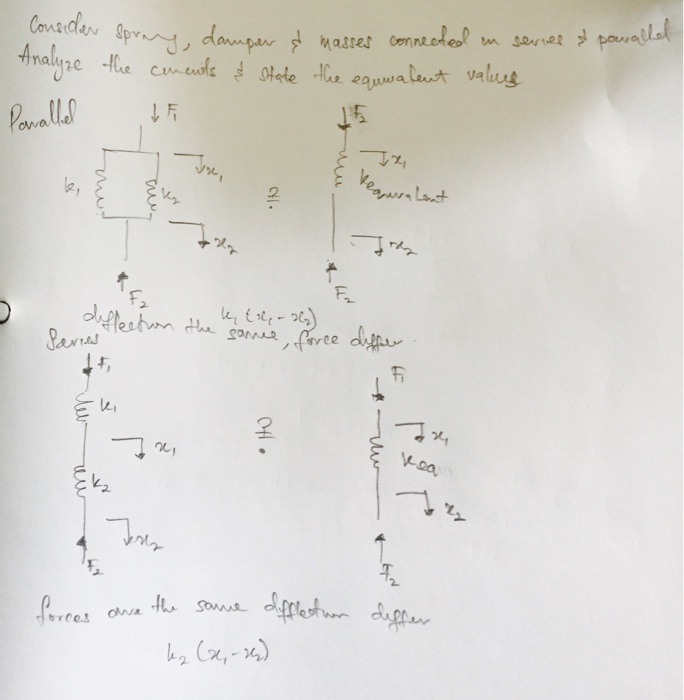 Consider spring, damper & masses connected in series & parallel
Analyze the circuits & state the equivalent values
Parallel
↓ F₁
↓ F₂
x₁
x₁
k₁
k₂
?
kequivalent
x₂
x₂
F₂
F₂
k₁ (x₁ - x₂)
diffection the same, force differ.
Series
F₁
F₁
k₁
x₁
?
x₁
k₂
keq
x₂
x₂
F₂
F₂
forces are the same difflection differ
k₂ (x₁ - x₂)